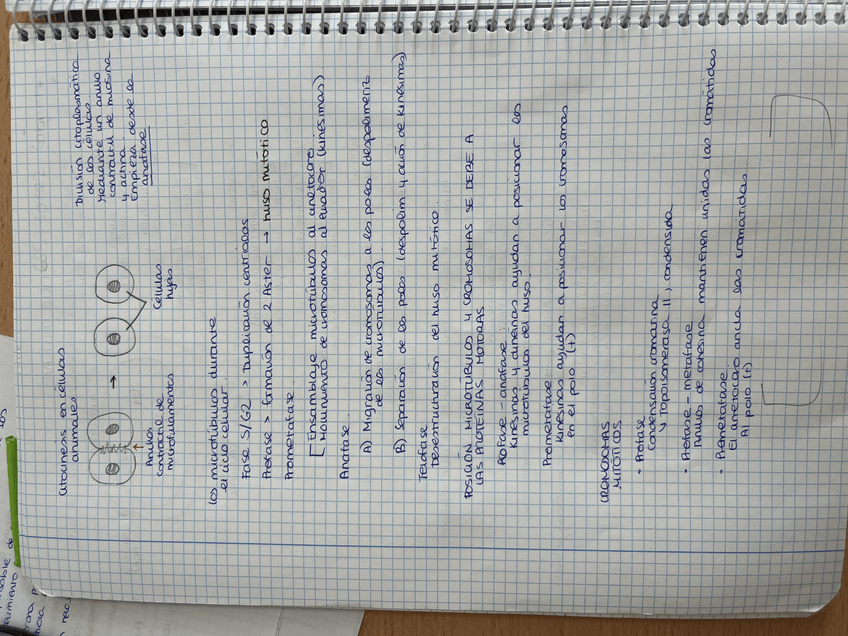 Citocinesis en células
animales
División citoplasmática
de las células.
Mediante un anillo
contráctil de miosina
y actina.
Empieza desde la
anafase
Anillos
contráctil de
microfilamentos
Células
hijas
Los microtúbulos durante
el ciclo celular.
Fase S/G2 > Duplicación centriolos
Profase > Formación de 2 Aster → huso mitótico
Prometafase.
[ Ensamblaje microtúbulos al cinetocoro.
Movimiento de cromosomas al ecuador (kinesinas).
Anafase.
A) Migración de cromosomas a los polos (despolimeriz
de los microtúbulos).
B) Separación de los polos (despolim y acción de kinesinas)
Telofase
Desestructuración del huso mitótico.
POSICIÓN MICROTÚBULOS Y CROMOSOMAS SE DEBE A
LAS PROTEÍNAS MOTORAS
Profase - anafase:
Kinesinas y dineínas ayudan a posicionar los
microtúbulos del huso.
Prometafase
Kinesinas ayudan a posicionar los cromosomas
en el polo (+)
CROMOSOMAS
MITÓTICOS
• Profase
Condensación cromatina
y Topoisomerasa II, condensida
• Profase - metafase
Anillos de cohesina mantienen unidas las cromátidas
• Prometafase
El cinetocoro ancla las cromátidas
Al polo (+)